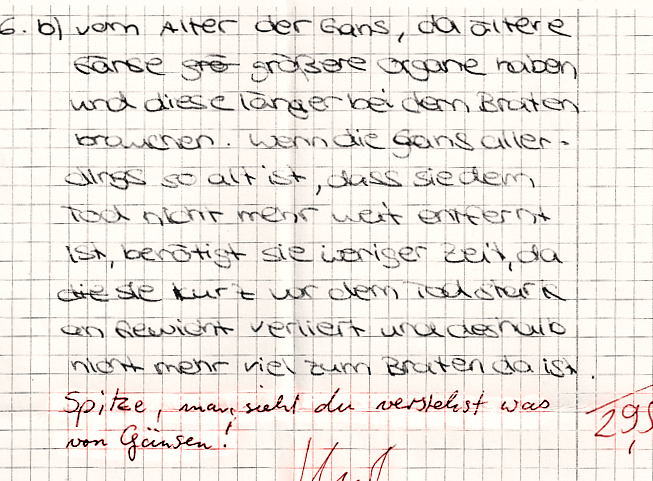 6. b) vom Alter der Gans, da ältere
Gänse grö größere Organe haben
und diese länger bei dem Braten
brauchen. Wenn die Gans aller-
dings so alt ist, dass sie dem
Tod nicht mehr weit entfernt
ist, benötigt sie weniger Zeit, da
die sie kurz vor dem Tod stark
an Gewicht verliert und deshalb
nicht mehr viel zum Braten da ist.
Spitze, man sieht du verstehst was
von Gänsen!